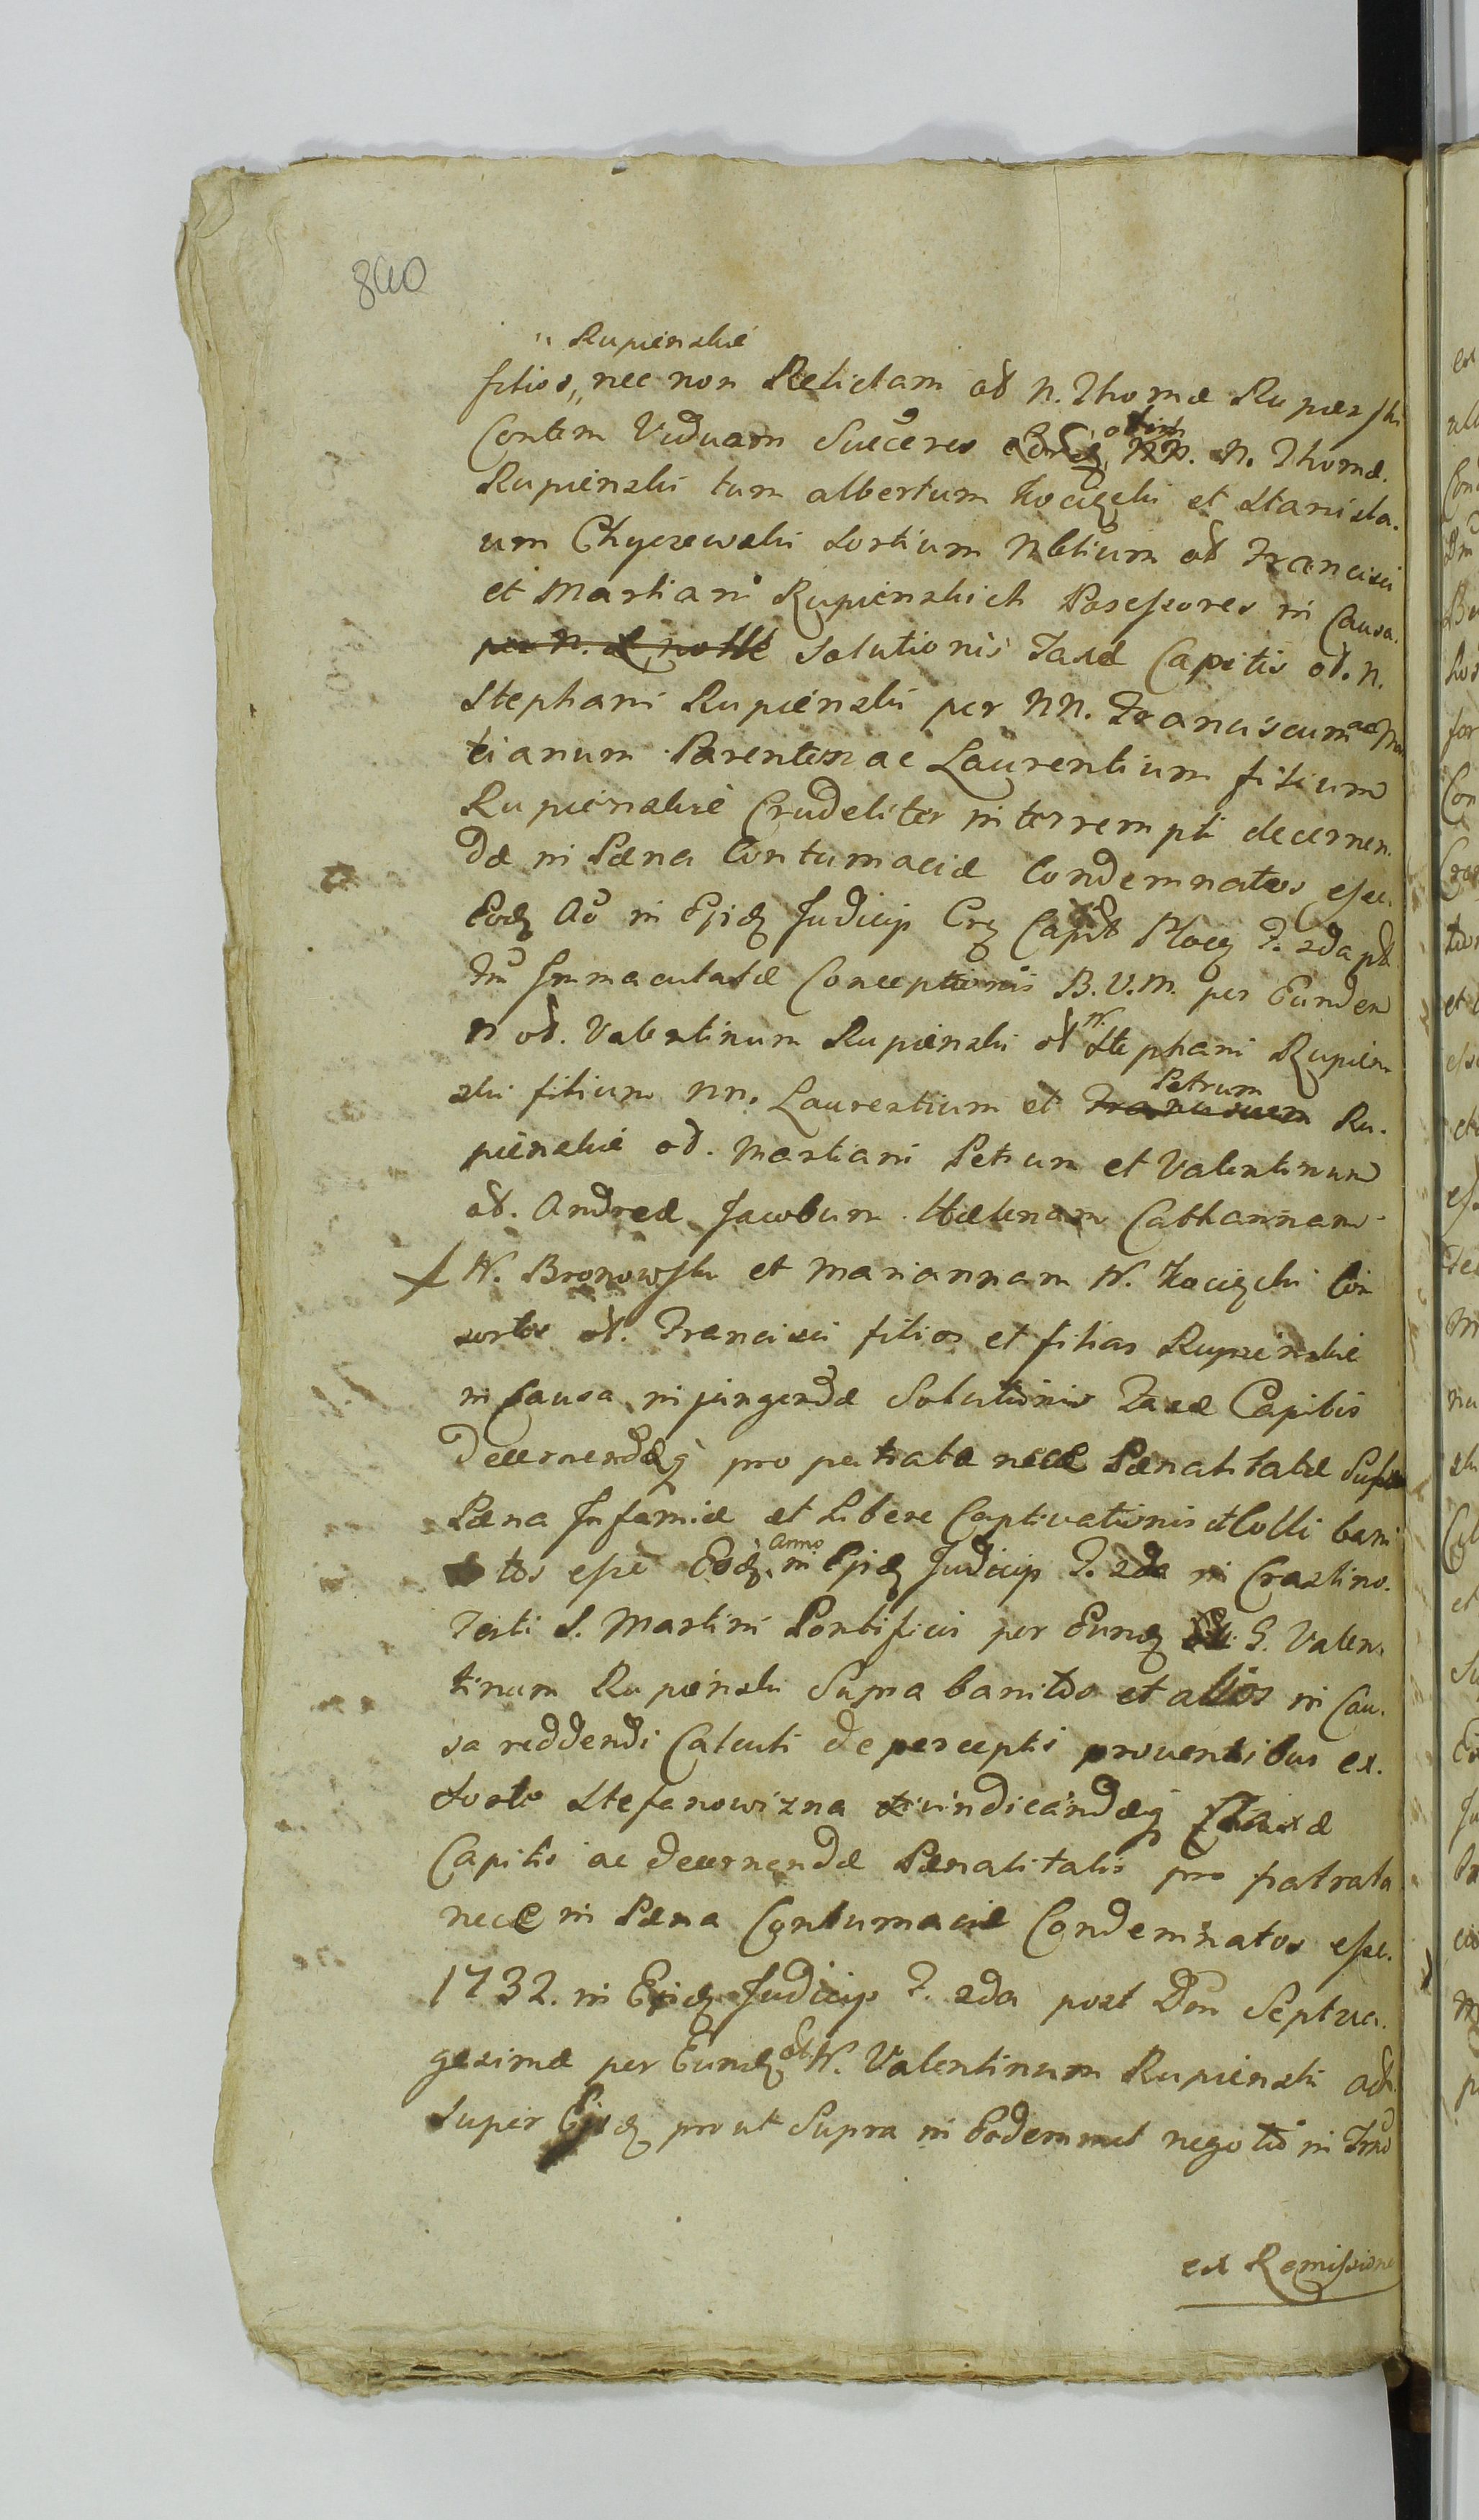 840
" Rupienskie
filios,, nec non Relictam od N. Thomæ Rupienski
Contem Viduam Succeres olim N. Thomæ.
Rupienski tum albertum Kocięcki et Stanisla.
um Chyczewski Sortium Nbilium od Francisci
et Martiani Rupienskich Possessores in Causa.
Solutionis Taxæ Capitis od. N.
Stephani Rupienski per NN. Franciscum ac Mar
tianum Parentem ac Laurentium filium
Rupienskie Crudeliter interrempti decernen.
dæ in Pæna Contumaciæ Condemnatos esse.
Eodq Ao in Ejsdq Judicijs Crq Captd Plocq F. 2da pt
Fm Immaculatæ Conceptionis B. V. M. per Eundem
N od. Valentinum Rupienski od N. Stephani Rupien
ski filium NN. Laurentium et Petrum Ru.
pienskie od. Martiani Petrum et Valentinum
od. Andreæ Jacobum Helenam Catharinam
N. Bronowski et Mariannam N. Kocięcki Con
sortes od. Francisci filios et filias Rupienskie
in Causa injungendæ Solutionis Taxæ Capitis
Decernendæq pro patrata nece Pænalitatæ Super
Pæna Infamiæ et Libere Captivationis et Colli bani
tos esse Eodq. Anno in Ejsdq Judicijs F. 2da in Crastino.
Festi S. Martini Pontificis per Eundq G. Valen.
tinum Rupienski Supra banitos et alios in Cau.
sa reddendi Calculi de perceptis proventibus ex.
Sorte Stefanowizna vindicandæq Taxæ
Capitis ac decernendæ Pænalitatis pro patrata
nece in Pæna Contumaciæ Condemnatos esse.
1732. in Ejsdq Judicijs F. 2da post Dom Septua.
gesimæ per Eundq od. N. Valentinum Rupienski act.
Super Ejsdq prout Supra in Eodemmet negotio in Trno
ex Remissione